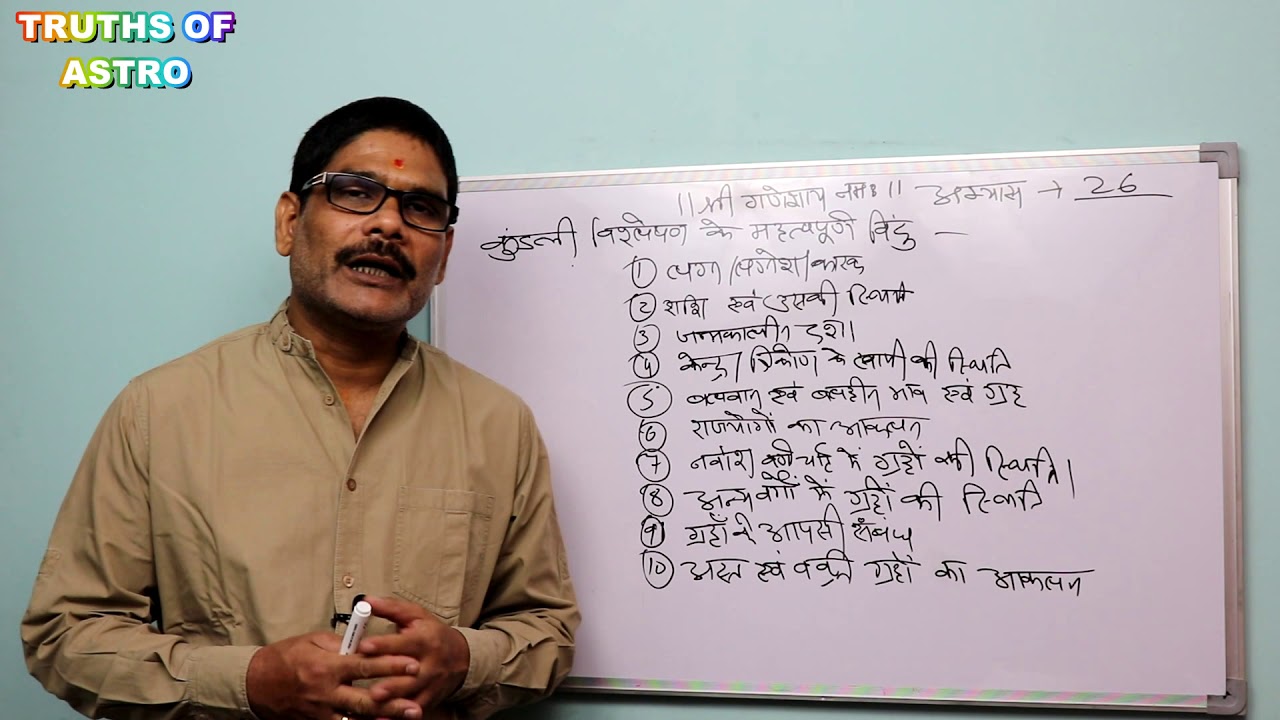 TRUTHS OF
ASTRO
|| श्री गणेशाय नमः || अभ्यास → 26
कुंडली विश्लेषण के महत्वपूर्ण बिंदु —
① लग्न/लग्नेश/कारक
② राशि एवं उसकी स्थिति
③ जन्मकालीन दशा
④ केन्द्र/त्रिकोण के स्वामी की स्थिति
⑤ बलवान एवं बलहीन भाव एवं ग्रह
⑥ राजयोगों का आकलन
⑦ नवांश वर्ग में ग्रहों की स्थिति।
⑧ अन्य वर्गों में ग्रहों की स्थिति
⑨ ग्रहों के आपसी संबंध
⑩ अस्त एवं वक्री ग्रहों का आकलन